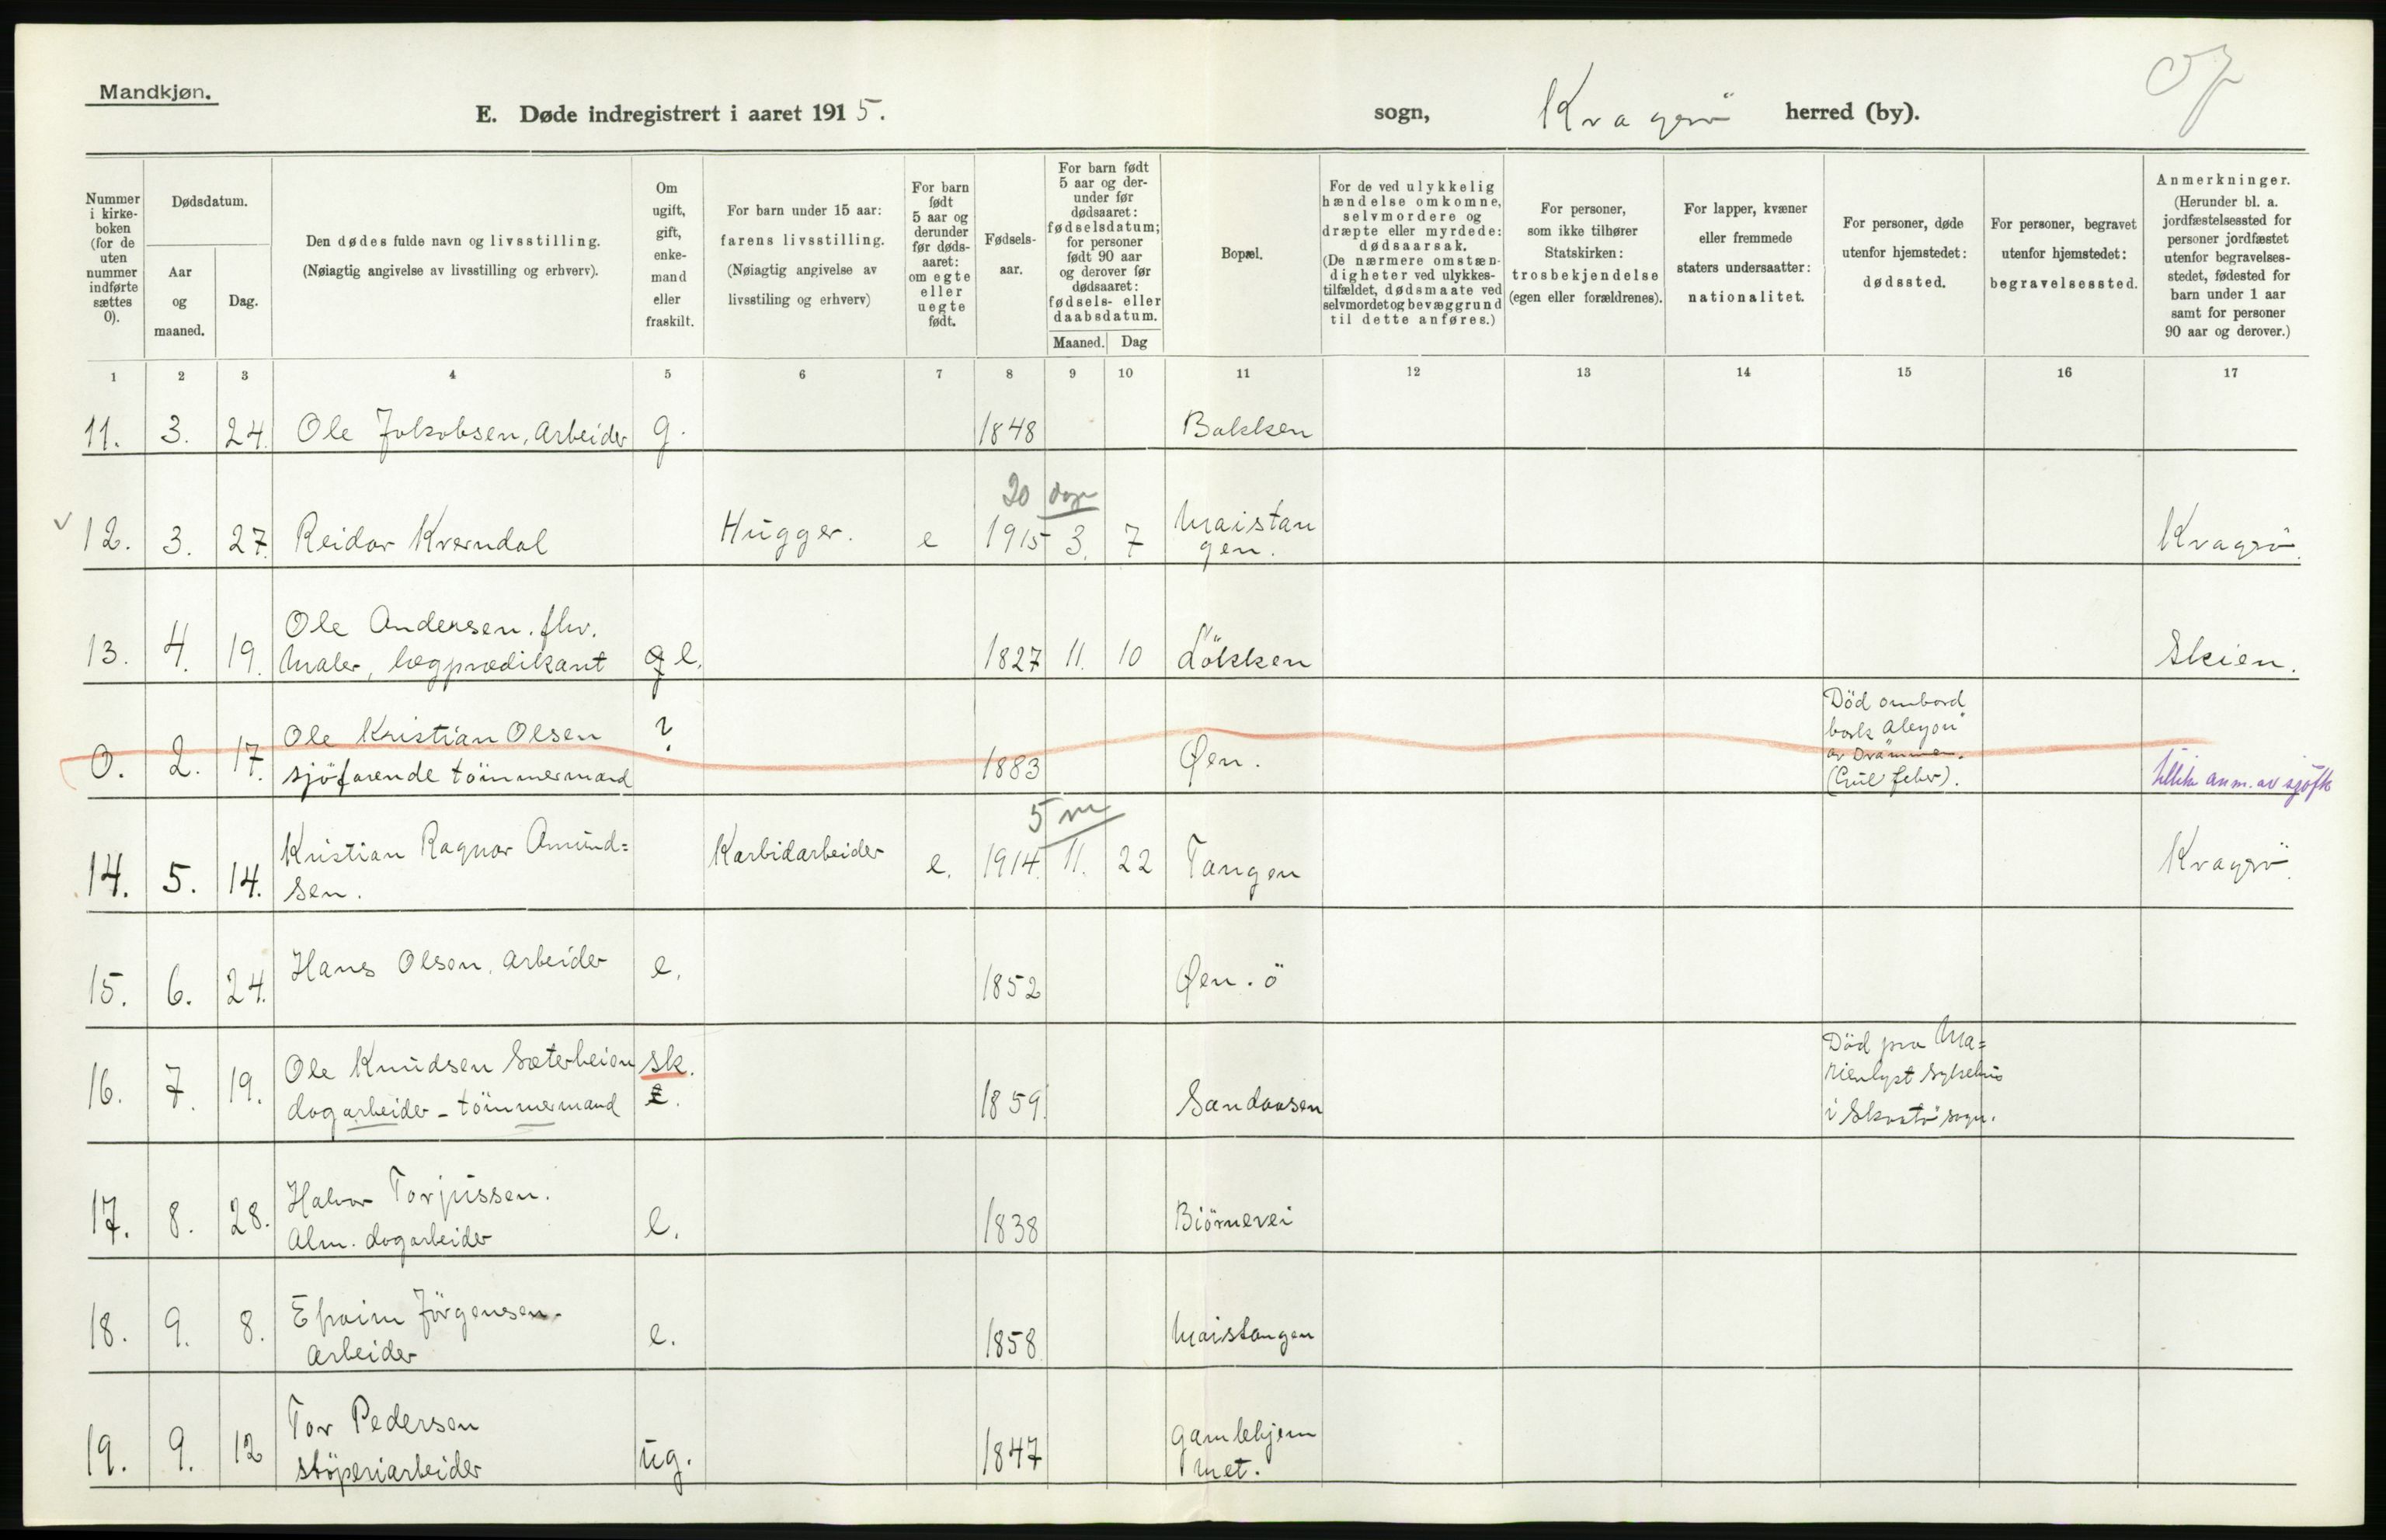 Mandkjøn.
E. Døde indregistrert i aaret 1915. sogn, Kragerö herred (by).
Nummer i kirke-boken (for de uten nummer indførte sættes 0).
Dødsdatum.
Aar og maaned.
Dag.
Den dødes fulde navn og livsstilling.
(Nøiagtig angivelse av livsstilling og erhverv).
Om ugift, gift, enke-mand eller fraskilt.
For barn under 15 aar:
farens livsstilling.
(Nøiagtig angivelse av
livsstiling og erhverv)
For barn født 5 aar og derunder før døds-aaret: om egte eller uegte født.
Fødsels-aar.
For barn født 5 aar og der-under før dødsaaret: fødselsdatum; for personer født 90 aar og derover før dødsaaret: fødsels- eller daabsdatum.
Maaned. Dag
Bopæl.
For de ved ulykkelig hændelse omkomne, selvmordere og dræpte eller myrdede: dødsaarsak. (De nærmere omstæn-digheter ved ulykkes-tilfældet, dødsmaate ved selvmordet og bevæggrund til dette anføres.)
For personer, som ikke tilhører Statskirken: trosbekjendelse (egen eller forældrenes).
For lapper, kvæner eller fremmede staters undersaatter: nationalitet.
For personer, døde utenfor hjemstedet: dødssted.
For personer, begravet utenfor hjemstedet: begravelsessted.
Anmerkninger.
(Herunder bl. a. jordfæstelsessted for personer jordfæstet utenfor begravelses-stedet, fødested for barn under 1 aar samt for personer 90 aar og derover.)
1 2 3 4 5 6 7 8 9 10 11 12 13 14 15 16 17
11. 3. 24. Ole Jakobsen, Arbeider g. 1848 Bakken
20 dage
12. 3. 27. Reidar Kverndal Hugger. e 1915 3. 7 Maistan
gen. Kragerö.
Ole Andersen. fhv.
13. 4. 19. Maler, lægprædikant g e. 1827 11. 10 Lökken Skien.
Ole Kristian Olsen ? Död ombord
bark Alcyon"
0. 2. 17. sjöfarende tömmermand 1883 Øen. av Drammen.
(Gul feber).
5 m
14. 5. 14. Kristian Ragnar Amund=
sen. Karbidarbeider e. 1914. 11. 22 Tangen Kragerö.
15. 6. 24. Hans Olsen, arbeider e. 1852 Øen. ö
16. 7. 19. Ole Knudsen Sæterheien sk. Död paa Ma=
rienlyst sykehus
dagarbeider - tömmermand 1859. Sandaasen i Skaatö sogn.
17. 8. 28. Halvor Torjussen.
Alm. dagarbeider e. 1838 Biörnevei
18. 9. 8. Efraim Jörgensen.
Arbeider e. 1858 Maistangen
19. 9. 12 Tor Pedersen
støperiarbeider ug. 1847 Gamlehjem
met.